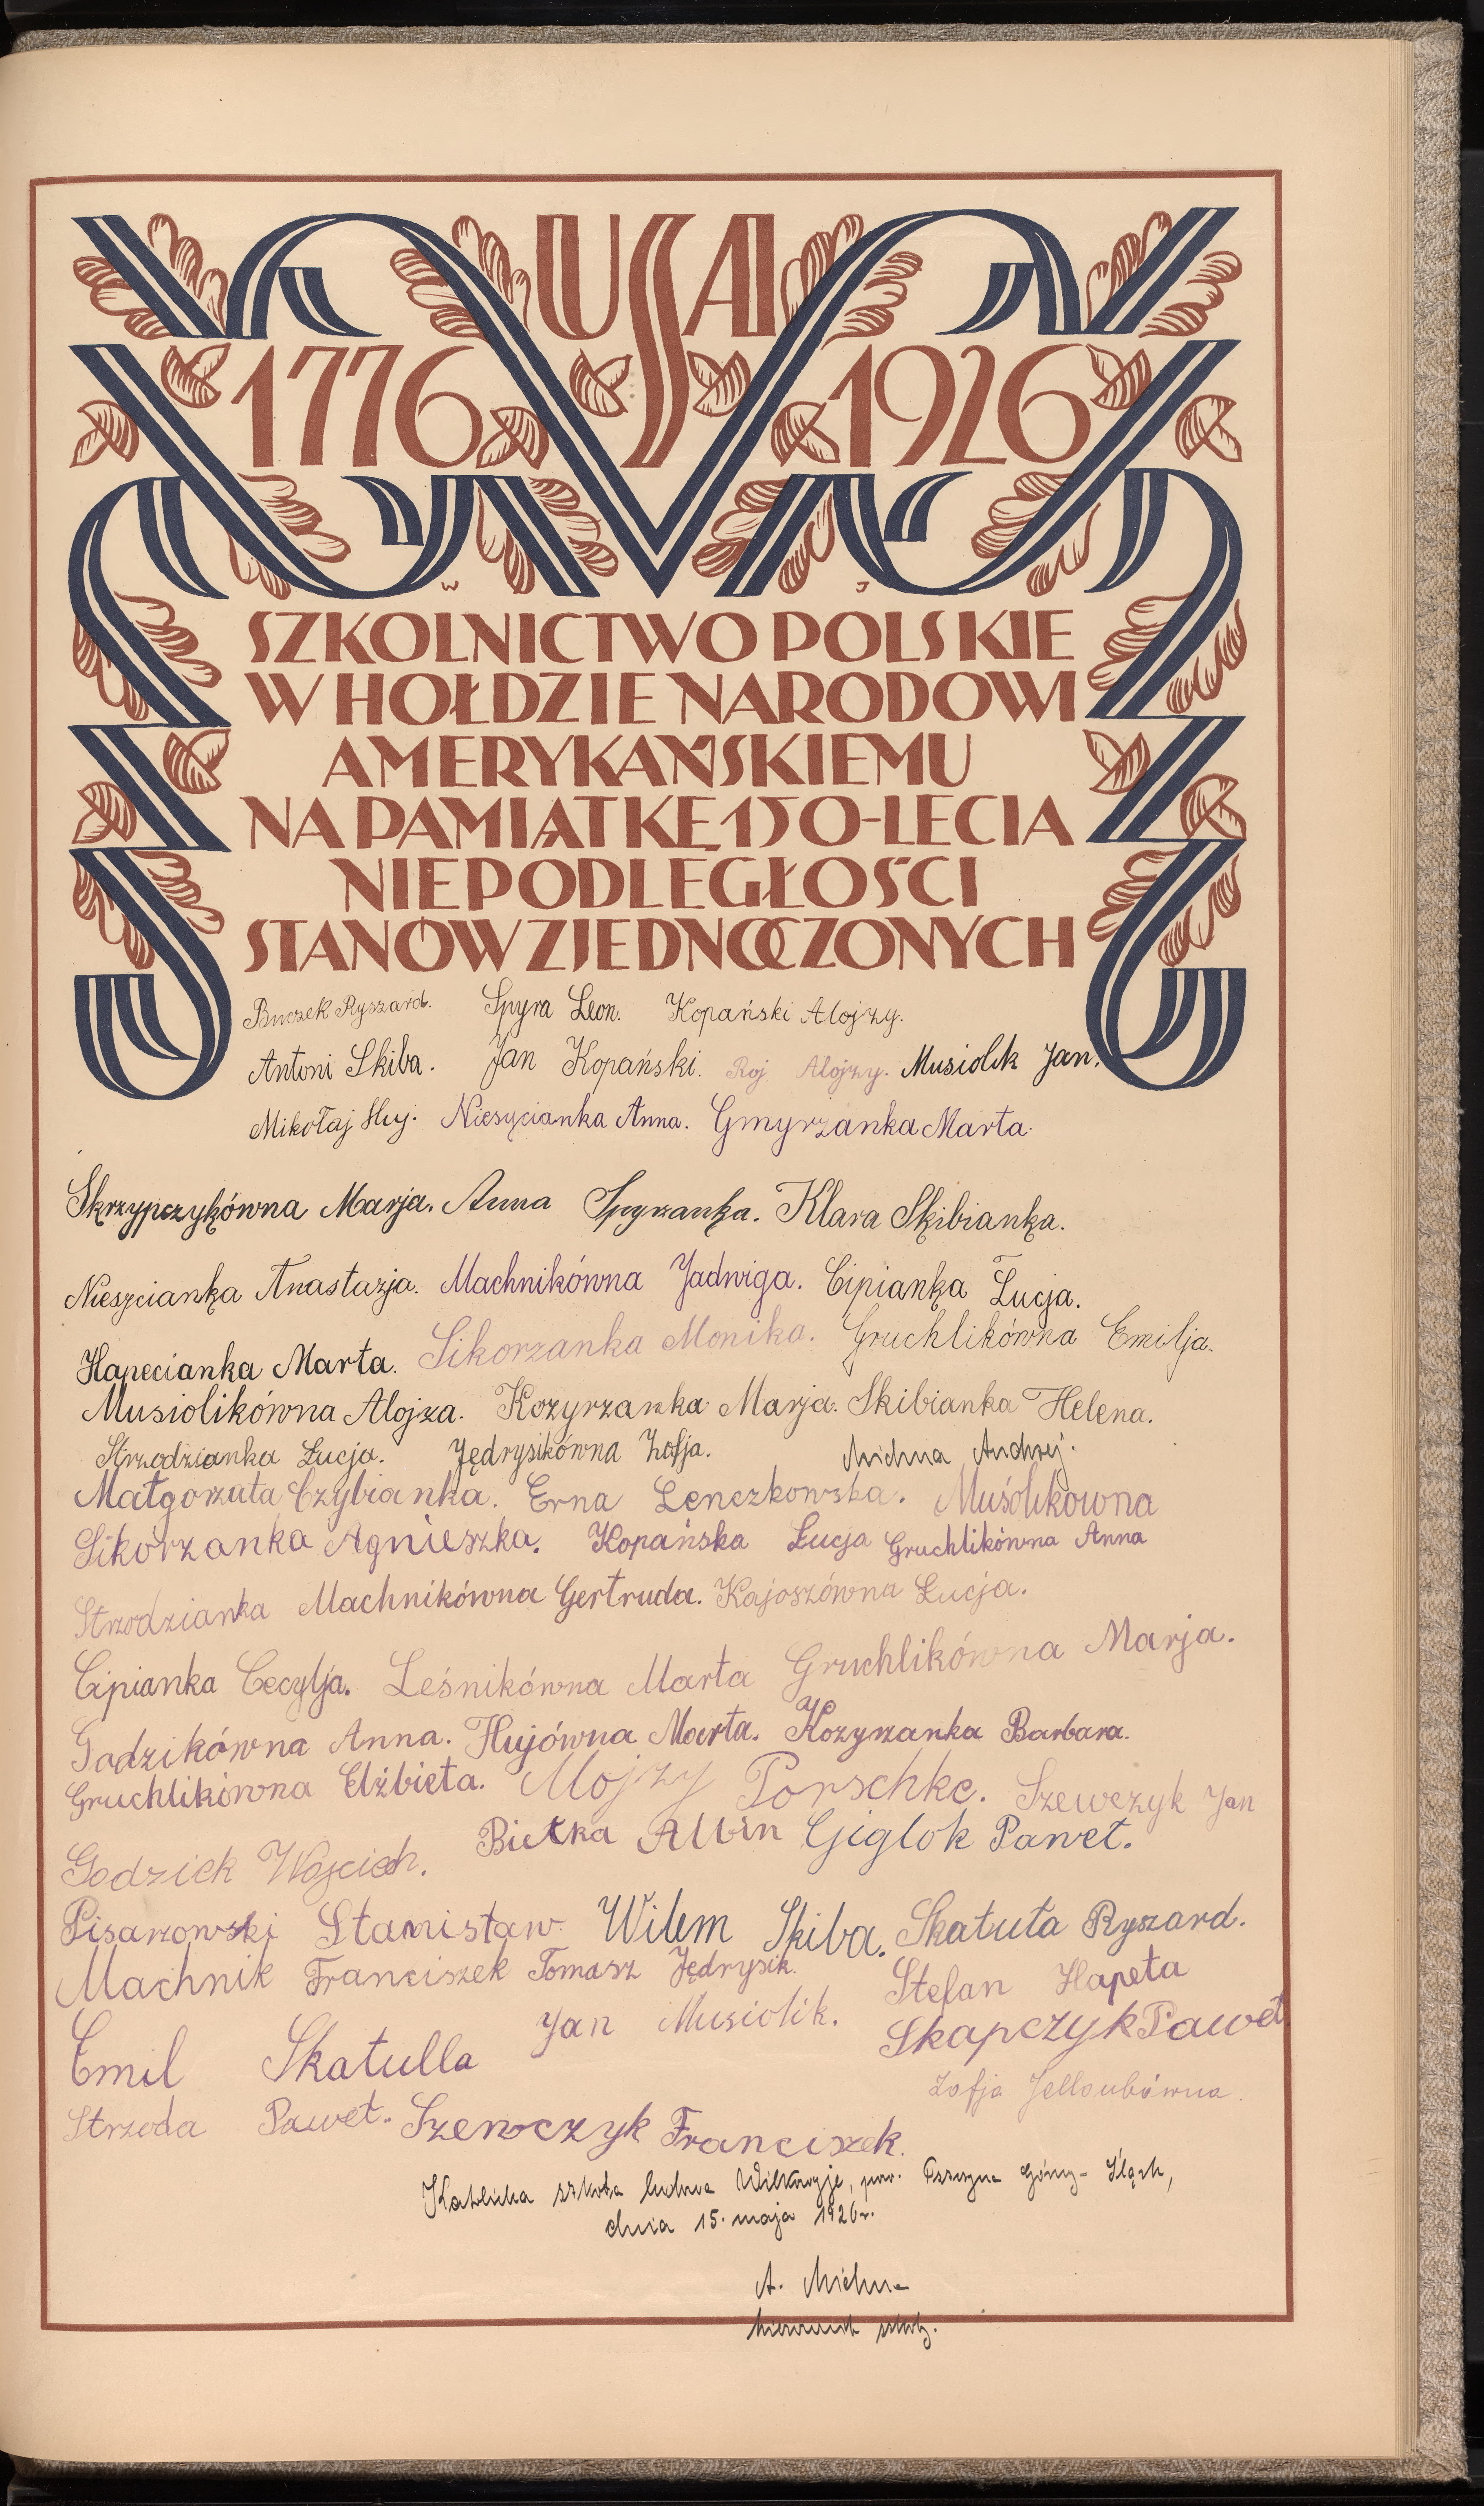 USA
1776 1926
W J
SZKOLNICTWO POLSKIE
W HOŁDZIE NARODOWI
AMERYKAŃSKIEMU
NA PAMIĄTKĘ 150-LECIA
NIEPODLEGŁOŚCI
STANÓW ZJEDNOCZONYCH
Buczek Ryszard. Spyra Leon. Kopański Alojzy.
Antoni Skiba. Jan Kopański. Roj Alojzy. Musiolik Jan.
Mikołaj Huj. Niesycianka Anna. Gmyrzanka Marta.
Skrzypczykówna Marja. Anna Spyrzanka. Klara Skibianka.
Niesycianka Anastazja. Machnikówna Jadwiga. Cipianka Łucja.
Hapecianka Marta. Sikorzanka Monika. Gruchlikówna Emilja.
Musiolikówna Alojza. Kozyrzanka Marja. Skibianka Helena.
Strzodzianka Łucja. Jędrysikówna Zofja. Michna Andrzej.
Małgorzata Czybianka. Erna Lenczkowska. Muśolikowna
Sikorzanka Agnieszka. Kopańska Łucja Gruchlikówna Anna
Strzodzianka Machnikówna Gertruda. Kajoszówna Łucja.
Cipianka Cecylja. Leśnikówna Marta Gruchlikówna Marja.
Godzikówna Anna. Hujówna Marta. Kozyrzanka Barbara.
Gruchlikówna Elżbieta. Alojzy Porschke. Szewczyk Jan
Godziek Wojciech. Bietka Albin Giglok Paweł.
Pisarzowski Stanisław. Wilem Skiba. Skatuła Ryszard.
Machnik Franciszek Tomasz Jędrysik. Stefan Hapeta
Emil Skatulla Jan Musiolik. Skapczyk Paweł
Zofja Jelloubówna.
Strzoda Paweł. Szewczyk Franciszek.
Katolicka szkoła ludowa Wilkowyje, pow. Pszczyna Górny-Śląsk,
dnia 15. maja 1926r.
A. Michna
kierownik szkoły.